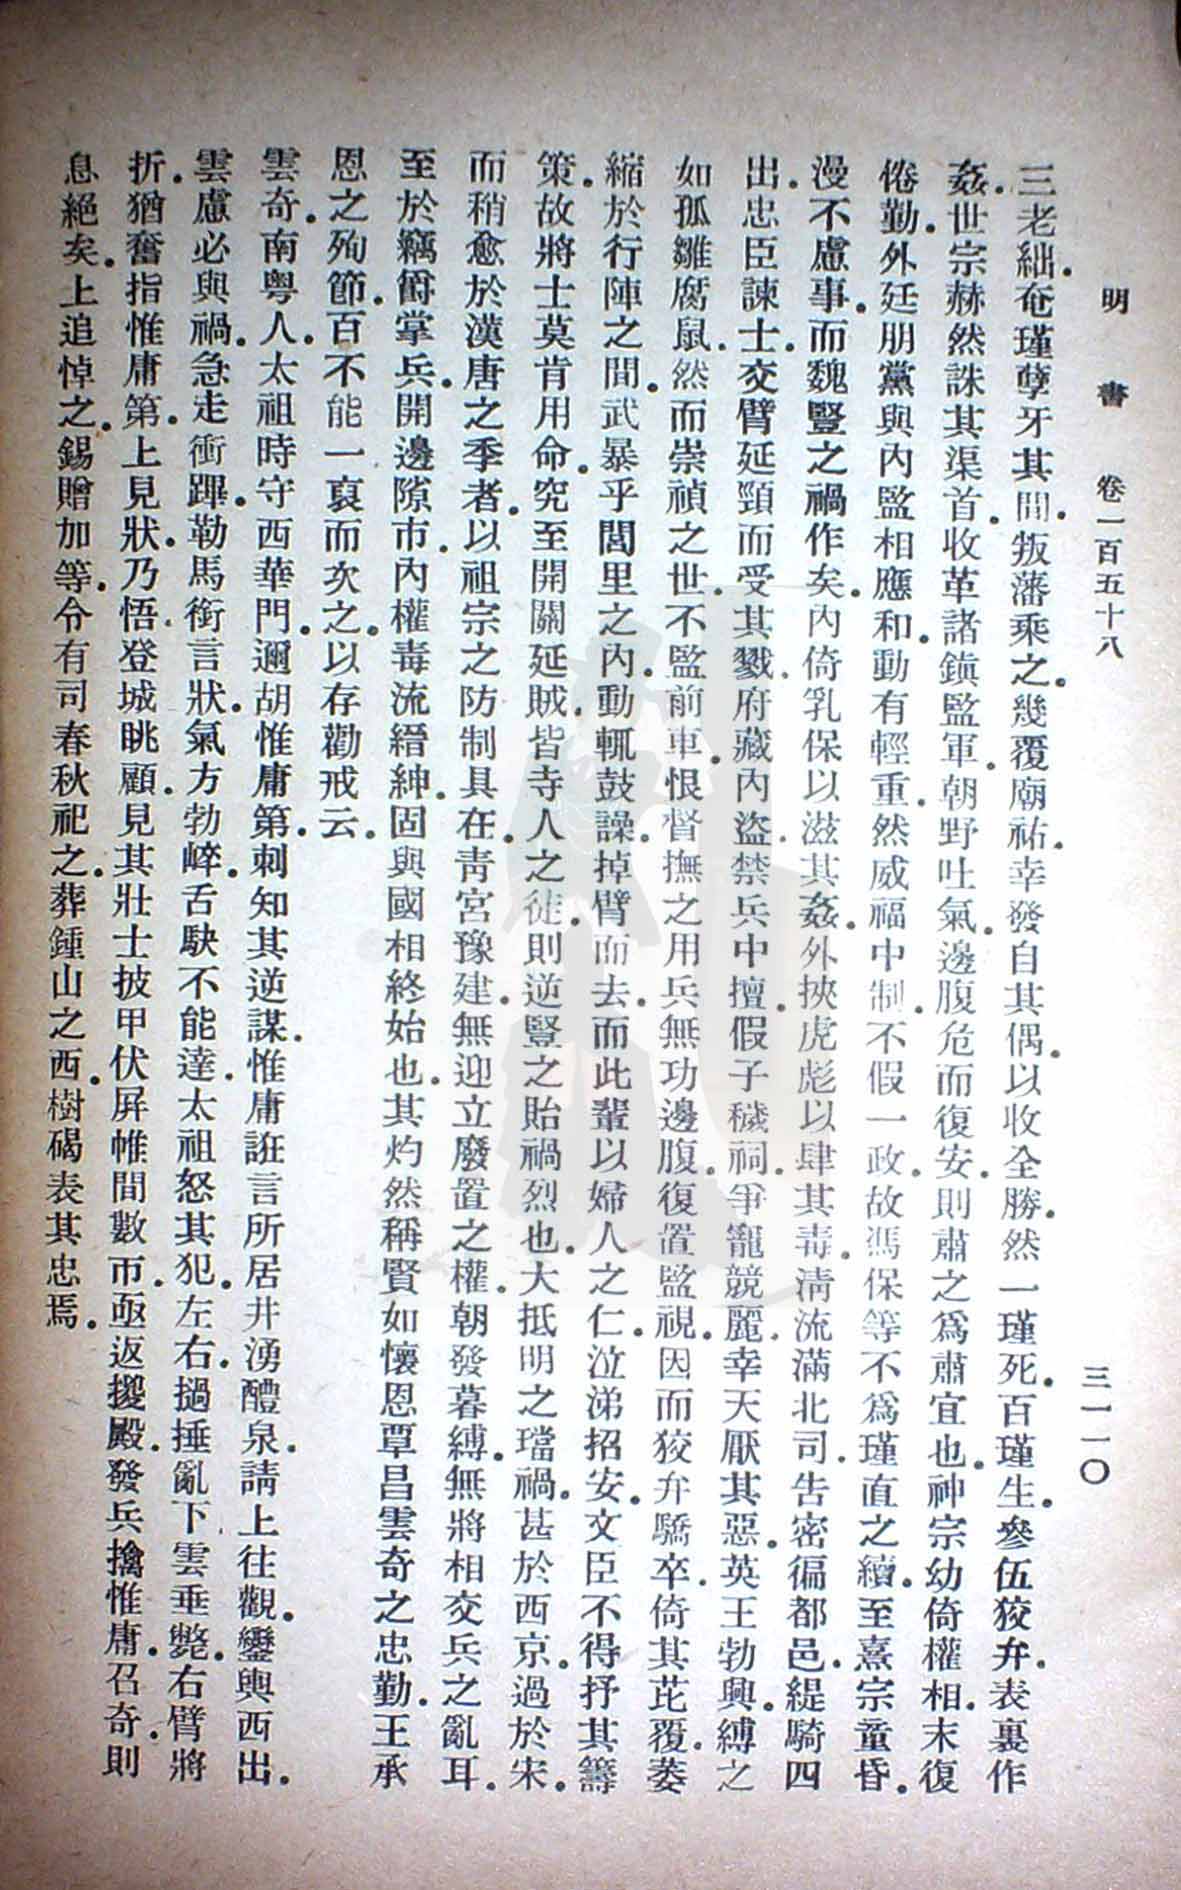 明書 卷一百五十八 三一一〇
三老絀。奄瑾孽牙其間。叛藩乘之。幾覆廟祏。幸發自其偶。以收全勝。然一瑾死。百瑾生。參伍狡弁。表裏作
姦。世宗赫然誅其渠首。收革諸鎮監軍。朝野吐氣。邊腹危而復安。則肅之爲肅宜也。神宗幼倚權相。末復
倦勤。外廷朋黨與內監相應和。動有輕重。然威福中制。不假一政。故馮保等不爲瑾直之續。至熹宗童昏。
漫不慮事。而魏豎之禍作矣。內倚乳保以滋其姦。外挾虎彪以肆其毒。清流滿北司。告密徧都邑。緹騎四
出。忠臣諫士。交臂延頸而受其戮。府藏內盜。禁兵中擅。假子穢祠。爭寵競麗。幸天厭其惡。英王勃興。縛之
如孤雛腐鼠。然而崇禎之世。不監前車。恨督撫之用兵無功。邊腹復置監視。因而狡弁驕卒。倚其芘覆。萎
縮於行陣之間。武暴乎閭里之內。動輒鼓譟。掉臂而去。而此輩以婦人之仁。泣涕招安。文臣不得抒其籌
策。故將士莫肯用命。究至開關延賊。皆寺人之徒。則逆豎之貽禍烈也。大抵明之璫禍。甚於西京。過於宋。
而稍愈於漢唐之季者。以祖宗之防制具在。青宮豫建。無迎立廢置之權。朝發暮縛。無將相交兵之亂耳。
至於竊爵掌兵。開邊隙市。內權毒流縉紳。固與國相終始也。其灼然稱賢如懷恩覃昌雲奇之忠勤。王承
恩之殉節。百不能一。裒而次之。以存勸戒云。
雲奇。南粵人。太祖時守西華門。邇胡惟庸第。刺知其逆謀。惟庸誑言所居井湧醴泉。請上往觀。鑾輿西出。
雲慮必與禍。急走衝蹕。勒馬銜言狀。氣方勃崪。舌駃不能達。太祖怒其犯。左右撾捶亂下。雲垂斃。右臂將
折。猶奮指惟庸第。上見狀。乃悟。登城眺顧。見其壯士披甲伏屏帷間數帀。亟返揔殿。發兵擒惟庸。召奇。則
息絕矣。上追悼之。錫贈加等。令有司春秋祀之。葬鍾山之西。樹碣表其忠焉。